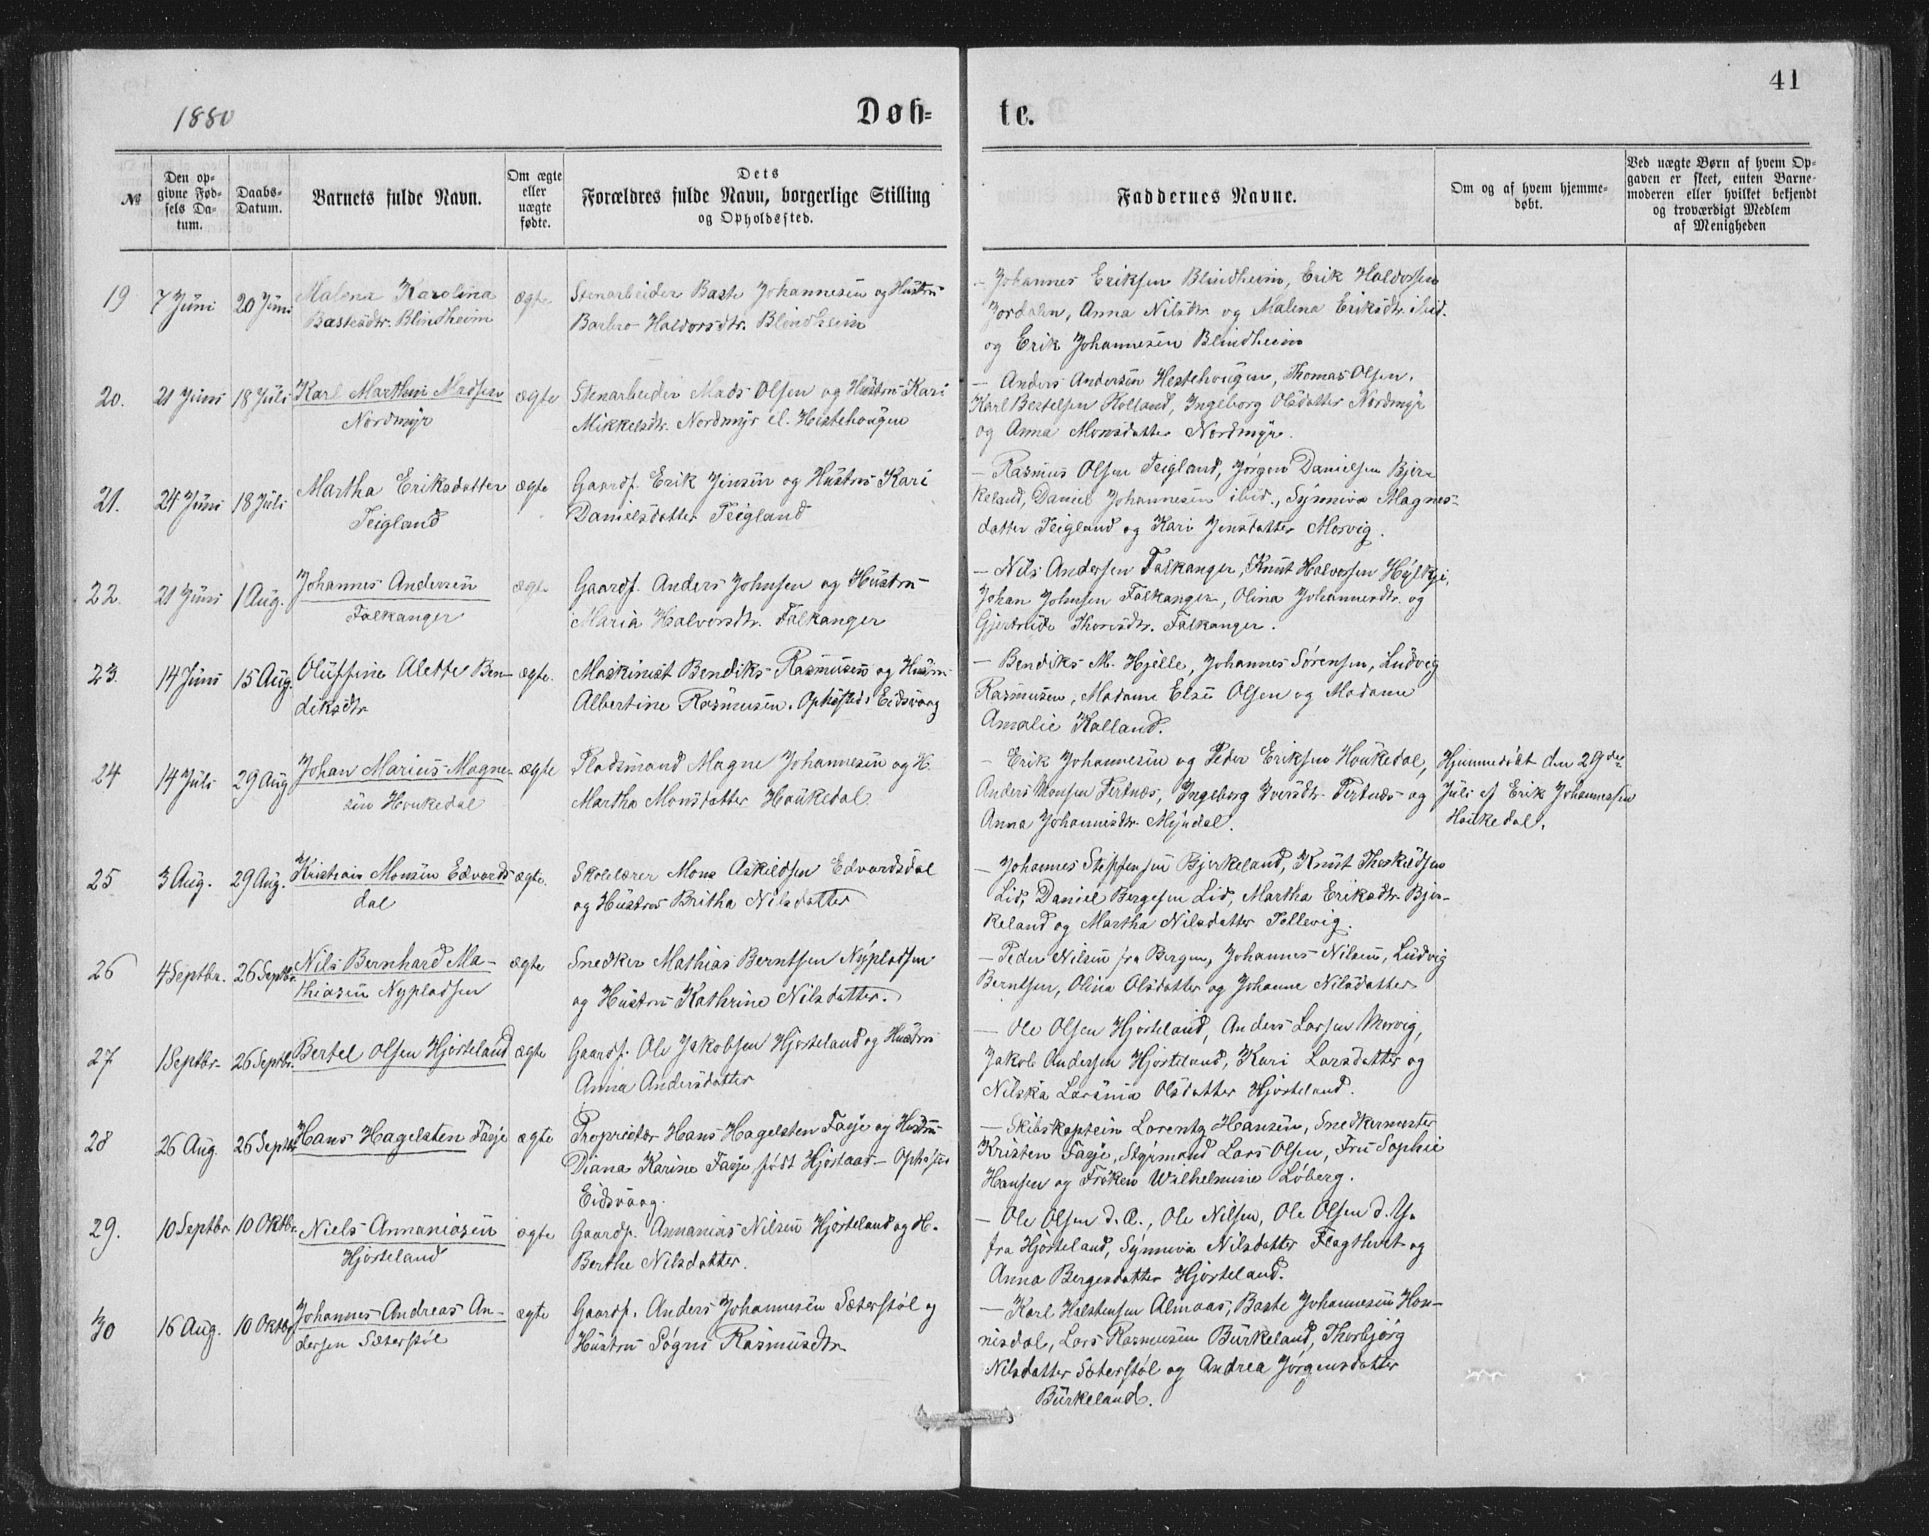 41
1880
Døb=
te.
№
Den op-
givne Fød-
sels Da-
tum.
Daabs-
Datum.
Barnets fulde Navn.
Om ægte
eller
uægte
fødte.
Dets
Forældres fulde Navn, borgerlige Stilling
og Opholdssted.
Faddernes Navne.
Om og af hvem hjemme-
døbt.
Ved uægte Børn af hvem Op-
gaven er skeet, enten Barne-
moderen eller hvilket bekjendt
og troværdigt Medlem
af Menigheden
19
7 Juni
20 Juni
Malena Karolina
Bastesdtr. Blindheim
ægte
Stenarbeider Baste Johannesen og Hustru
Barbro Haldorsdtr. Blindheim
- Johannes Eriksen Blindheim, Erik Haldorsen
Jordalen, Anna Nilsdtr og Malena Eriksdtr. ibid.
og Erik Johannesen Blindheim
20.
21 Juni
18 Juli
Karl Marthin Madsen
Nordmyr
ægte
Stenarbeider Mads Olsen og Hustru Kari
Mikkelsdtr. Nordmyr el. Hestehougen
- Anders Andersen Hestehougen, Thomas Olsen,
Karl Bertelsen Holland, Ingeborg Olsdatter Nordmyr
og Anna Monsdatter Nordmyr.
21.
24 Juni
18 Juli
Martha Eriksdatter
Teigland
ægte
Gaardf. Erik Jensen og Hustru Kari
Danielsdatter Teigland
- Rasmus Olsen Teigland, Jørgen Danielsen Bjer-
keland, Daniel Johannesen ibid., Synneva Magnes-
datter Teigland og Kari Jensdatter Morvig.
22.
21 Juni
1 Aug.
Johannes Andersen
Falkanger
ægte
Gaardf. Anders Johnsen og Hustru
Maria Halvorsdtr. Falkanger
- Nils Andersen Falkanger, Knut Halvorsen Hylkje,
Johan Johnsen Falkanger, Olina Johannesdtr. og
Gjertrude Thorsdtr. Falkanger.
23.
14 Juni
15 Aug.
Oluffine Alette Ben-
diksdtr
ægte.
Maskinist Bendiks Rasmusen og Hustru
Albertine Rasmusen. Opholdsted: Eidsvaag
- Bendiks M. Hjelle, Johannes Sørensen, Ludvig
Rasmusen, Madame Elen Olsen og Madame
Amalie Kalland.
24
14 Juli
29 Aug
Johan Marius Magne-
sen Houkedal
ægte
Pladsmand Magne Johannesen og H.
Martha Monsdatter Houkedal
- Erik Johannesen og Peder Eriksen Houkedal,
Anders Monsen Tertnæs, Ingeborg Iversdtr. Tertnæs og
Anna Johannesdtr. Myrdal.
Hjemmedøbt den 29de
Juli af Erik Johannessen
Houkedal.
25
3 Aug.
29 Aug.
Kristian Monsen Edvards
dal
ægte.
Skolelærer Mons Askildsen Edvardsdal
og Hustru Britha Nilsdatter
- Johannes Steffensen Bjerkeland, Knut Thorkildsen
Lid, Daniel Bergesen Lid, Martha Eriksdtr. Bjer-
keland og Martha Nilsdatter Tellevig.
26
4 Septbr.
26 Septbr
Nils Bernhard Ma-
thiasen Nypladsen
ægte
Snedker Mathias Berntsen Nypladsen
og Hustru Kathrine Nilsdatter.
- Peder Nilsen fra Bergen, Johannes Nilsen, Ludvig
Berntsen, Olina Olsdatter og Johanne Nilsdatter
27
1 Septbr.
26 Septbr.
Bertel Olsen Hjorteland
ægte
Gaardf. Ole Jakobsen Hjorteland og Hustru
Anna Andersdatter
- Ole Olsen Hjorteland, Anders Larsen Morvig,
Jakob Andersen Hjorteland, Kari Larsdatter og
Nilska Larsina Olsdatter Hjorteland.
28
26 Aug.
26 Septbr
Hans Hagelsten Fasje
ægte
Proprietær Hans Hagelsten Fasje og Hustru
Diana Karine Fasje født Hjortaas - Opholdsted
Eidsvaag.
- Skibskaptein Lorentz Hansen, Snedkermester
Kristen Fasje, Styrmand Lars Olsen, Fru Sophie
Hansen og Frøken Wilhelmine Løberg.
29.
10 Septbr.
10 Oktbr.
Niels Annaniasen
Hjorteland
ægte
Gaardf. Annanias Nilsen Hjorteland og H.
Berthe Nilsdatter.
- Ole Olsen d. Æ., Ole Nilsen, Ole Olsen d. Y.
fra Hjorteland, Synneva Nilsdatter Flagthvet og
Anna Bergesdatter Hjorteland.
30
16 Aug.
10 Oktbr
Johannes Andreas An-
dersen Sæterstøl
ægte
Gaardf. Anders Johannesen Sæterstøl og
Hustru Søgni Rasmusdtr.
- Karl Halstensen Almaas, Baste Johannesen Hon-
nisdal, Lars Rasmusen Burkeland, Thorbjørg
Nilsdatter Sæterstøl og Andrea Jørgensdatter
Burkeland.